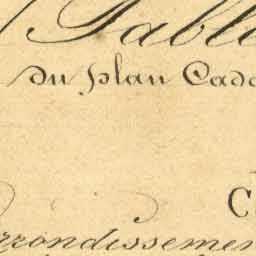 Table
du plan Cada
C
rrondissemen